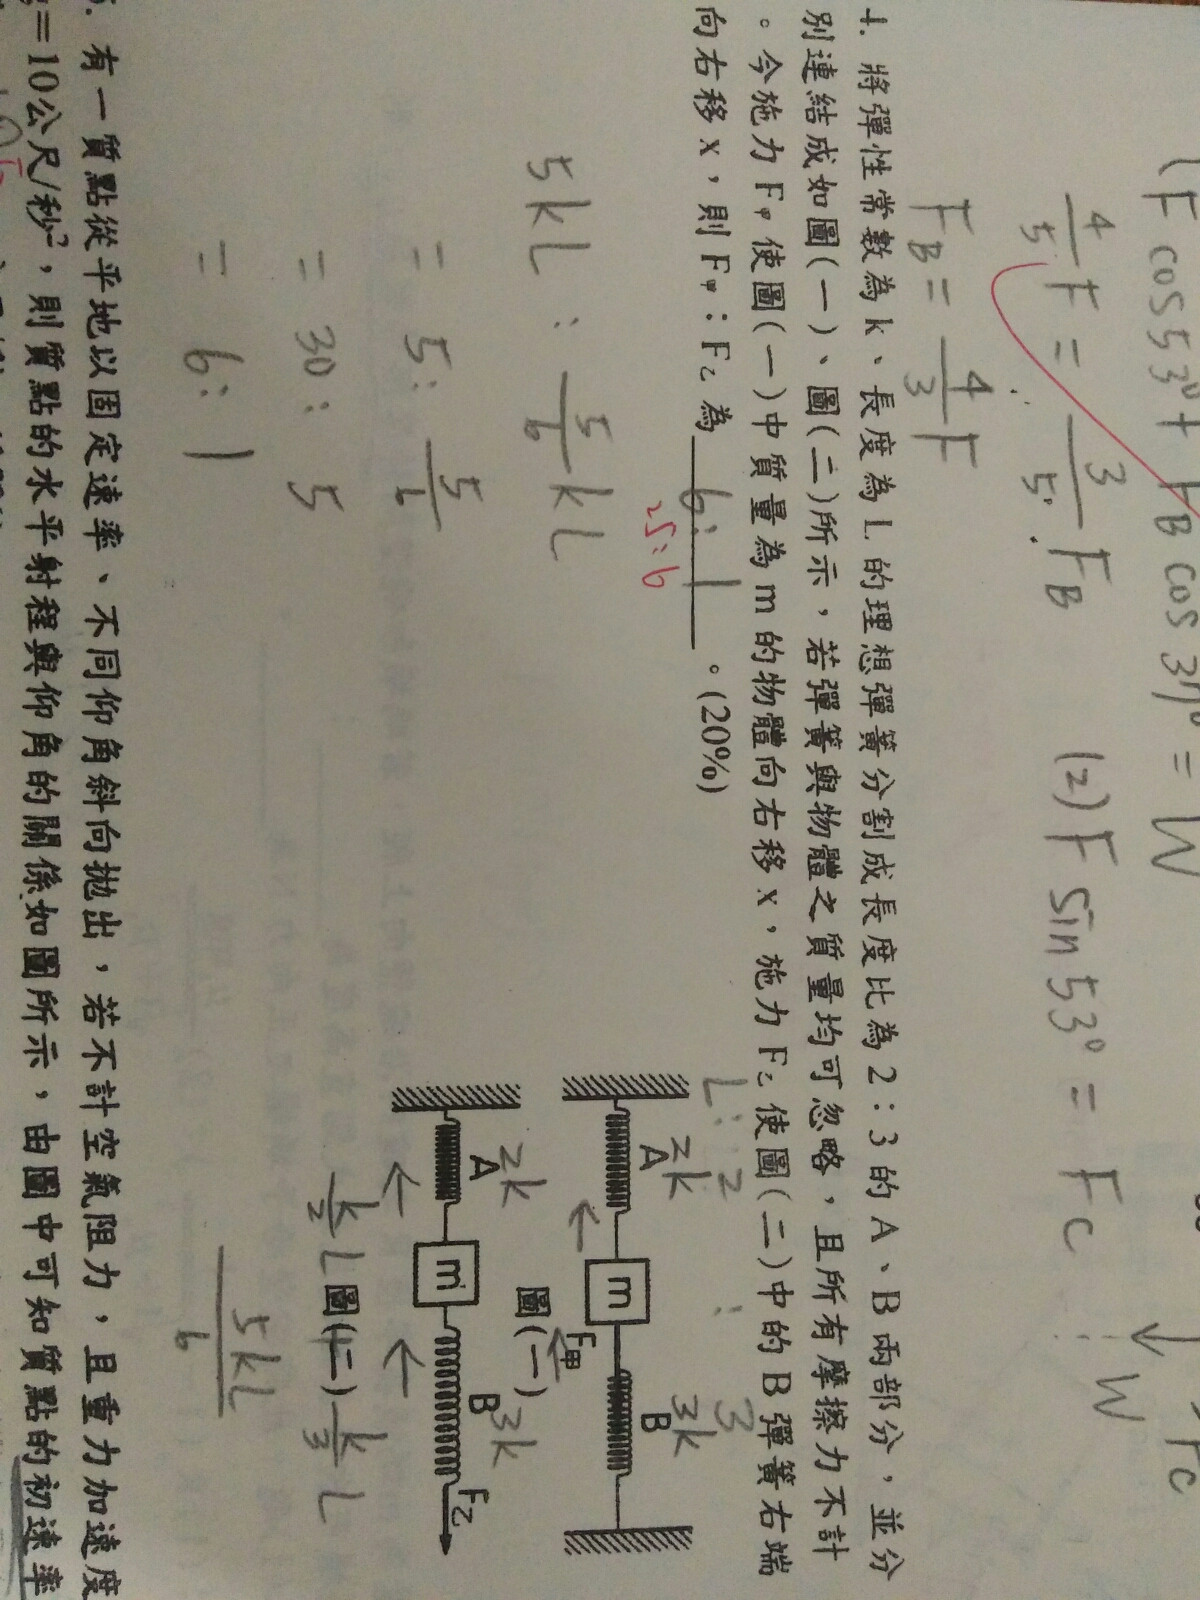 (F cos53° + F_B cos 37° = W
4/5 F = 3/5 F_B
(2) F sin 53° = Fc
F_B = 4/3 F
W
Fc
4. 將彈性常數為 k、長度為 L 的理想彈簧分割成長度比為 2：3 的 A、B 兩部分，並分
別連結成如圖(一)、圖(二)所示，若彈簧與物體之質量均可忽略，且所有摩擦力不計
。今施力 F甲 使圖(一)中質量為 m 的物體向右移 x，施力 F乙 使圖(二)中的 B 彈簧右端
向右移 x，則 F甲：F乙 為 6:1 。(20%)
25:6
L: 2 : 3
2k 3k
A B
m
F甲
圖(一)
2k 3k
A B
m
F乙
圖(二)
k/2 L k/3 L
5kL/6
5kL : 5/6 kL
= 5: 5/6
= 30: 5
= 6: 1
5. 有一質點從平地以固定速率、不同仰角斜向拋出，若不計空氣阻力，且重力加速度
g=10公尺/秒²，則質點的水平射程與仰角的關係如圖所示，由圖中可知質點的初速率